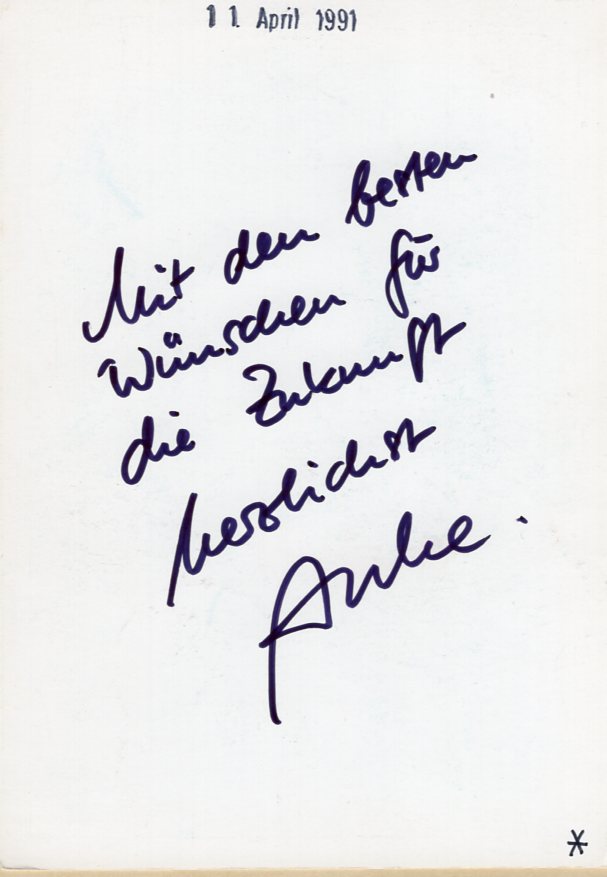 11. April 1991
Mit den besten
Wünschen für
die Zukunft
herzlichst
Anke.